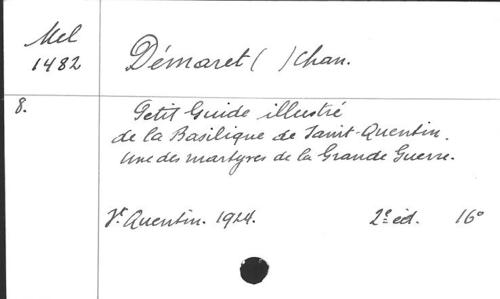 Mel
1482
Démaret ( ) Chan.
8.
Petit Guide illustré
de la Basilique de Saint-Quentin.
Une des martyres de la Grande Guerre.
St Quentin. 1924. 2e éd. 16°